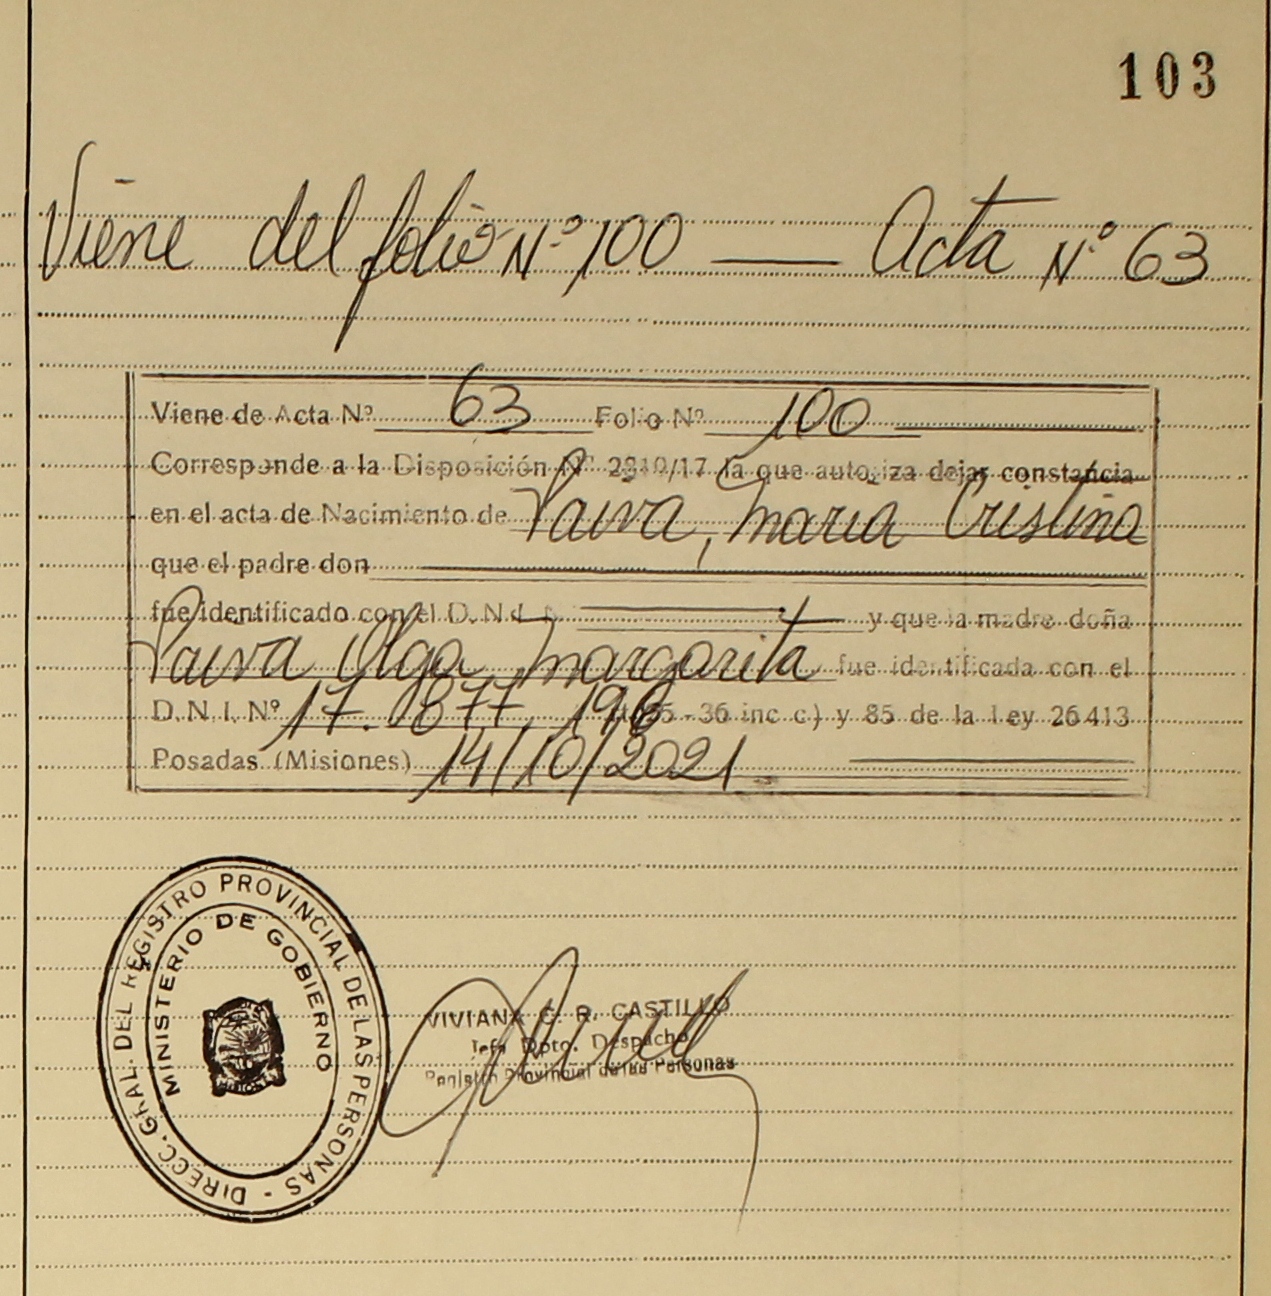 103
Viene del folio Nº 100 — Acta Nº 63
Viene de Acta Nº 63 Folio Nº 100
Corresponde a la Disposición Nº 2310/17 la que autoriza dejar constancia
en el acta de Nacimiento de Paiva, Maria Cristina
que el padre don
fue identificado con el D.N.I. y que la madre doña
Paiva Olga Margarita fue identificada con el
D.N.I. Nº 17.877.196 - 36 inc c) y 85 de la Ley 26413
Posadas (Misiones) 14/10/2021
DIRECC. GRAL. DEL REGISTRO PROVINCIAL DE LAS PERSONAS -
MINISTERIO DE GOBIERNO
VIVIANA C. R. CASTILLO
Jefe Dpto. Despacho
Registro Provincial de las Personas